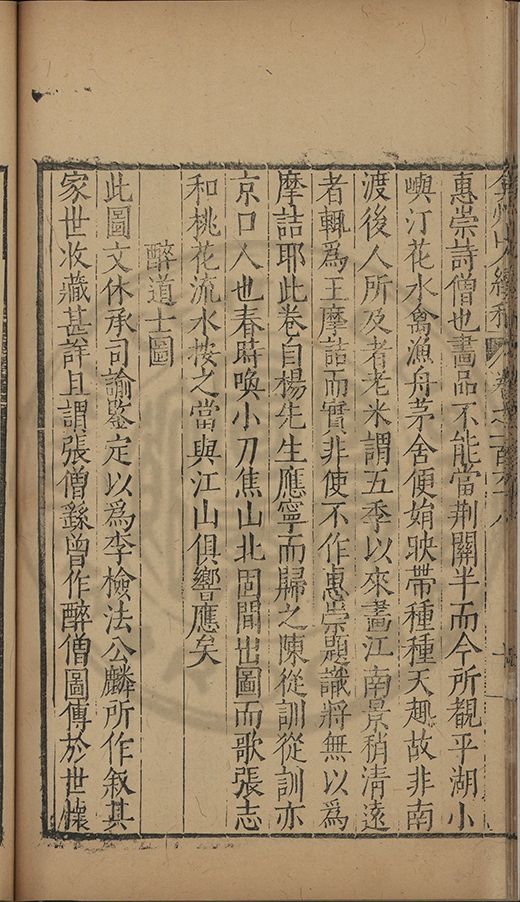 弇州山人續稿 卷之一百六十八
惠崇詩僧也畫品不能當荆關半而今所覩平湖小
嶼汀花水禽漁舟茅舍便娟映帶種種天趣故非南
渡後人所及者老米謂五季以來畫江南景稍清遠
者輒爲王摩詰而實非使不作惠崇題識將無以爲
摩詰耶此卷自楊先生應寧而歸之陳從訓從訓亦
京口人也春時喚小刀焦山北固間出圖而歌張志
和桃花流水按之當與江山俱響應矣
醉道士圖
此圖文休承司諭鑒定以爲李檢法公麟所作叙其
家世收藏甚詳且謂張僧繇曾作醉僧圖傳於世懷